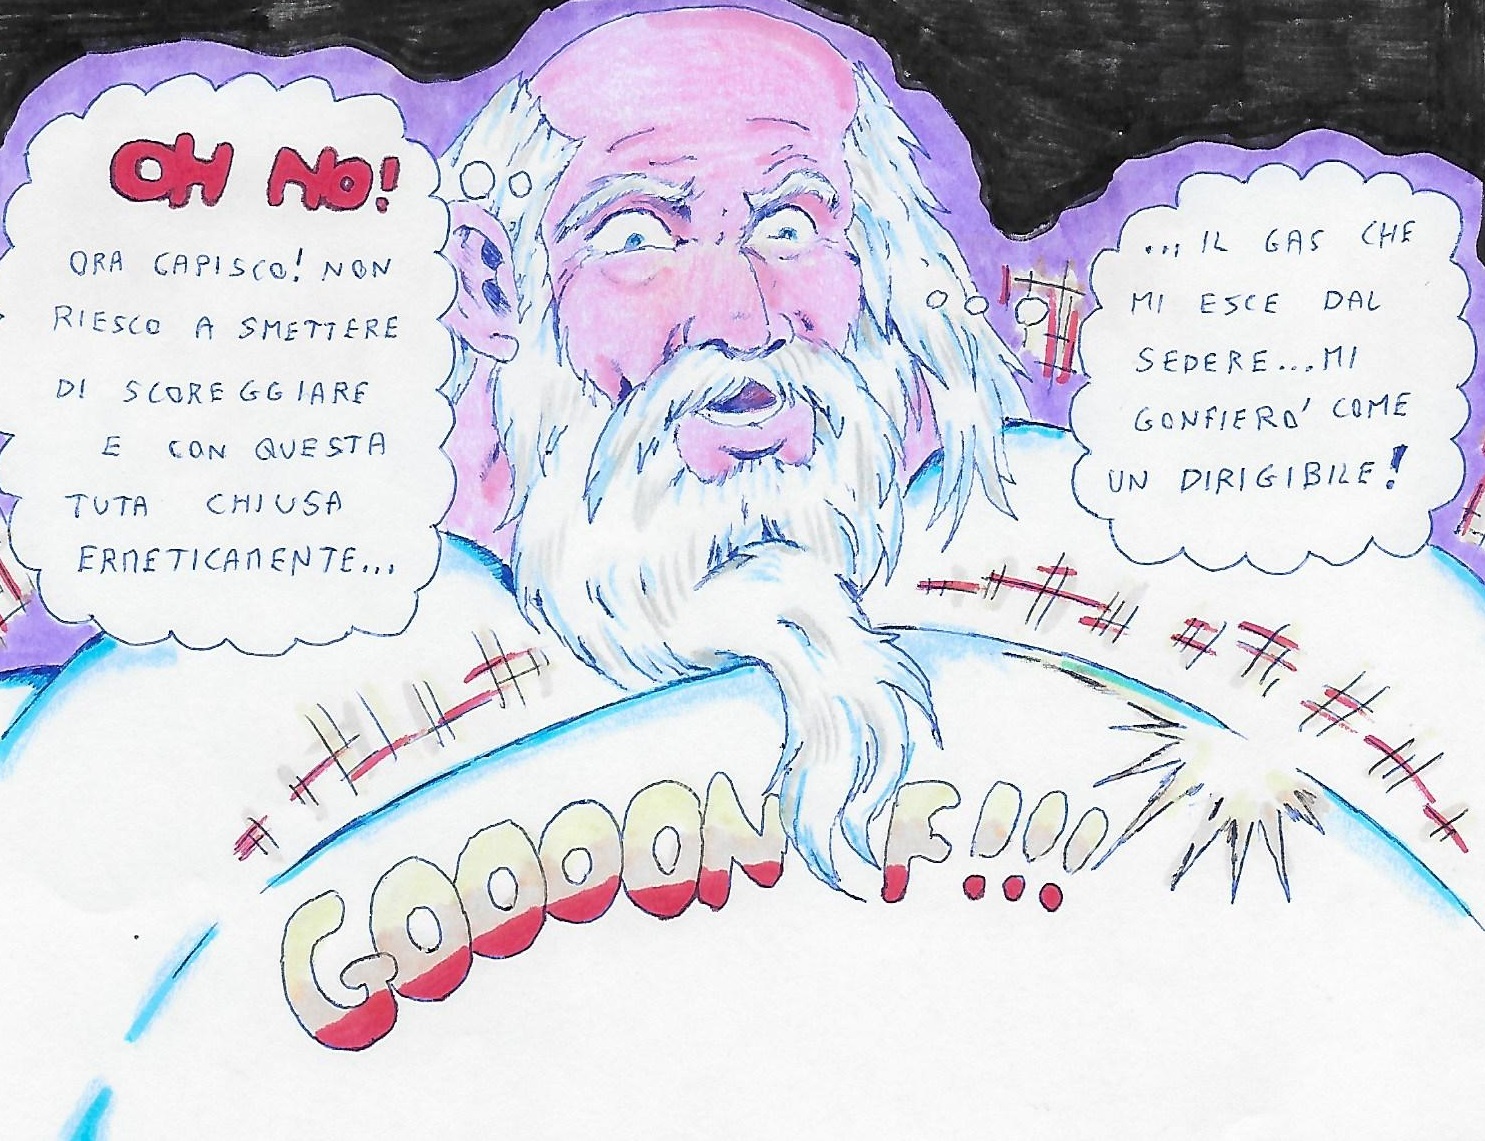 OH NO!
ORA CAPISCO! NON
RIESCO A SMETTERE
DI SCOREGGIARE
E CON QUESTA
TUTA CHIUSA
ERMETICAMENTE...
...IL GAS CHE
MI ESCE DAL
SEDERE...MI
GONFIERO' COME
UN DIRIGIBILE!
GOOOONF!!!